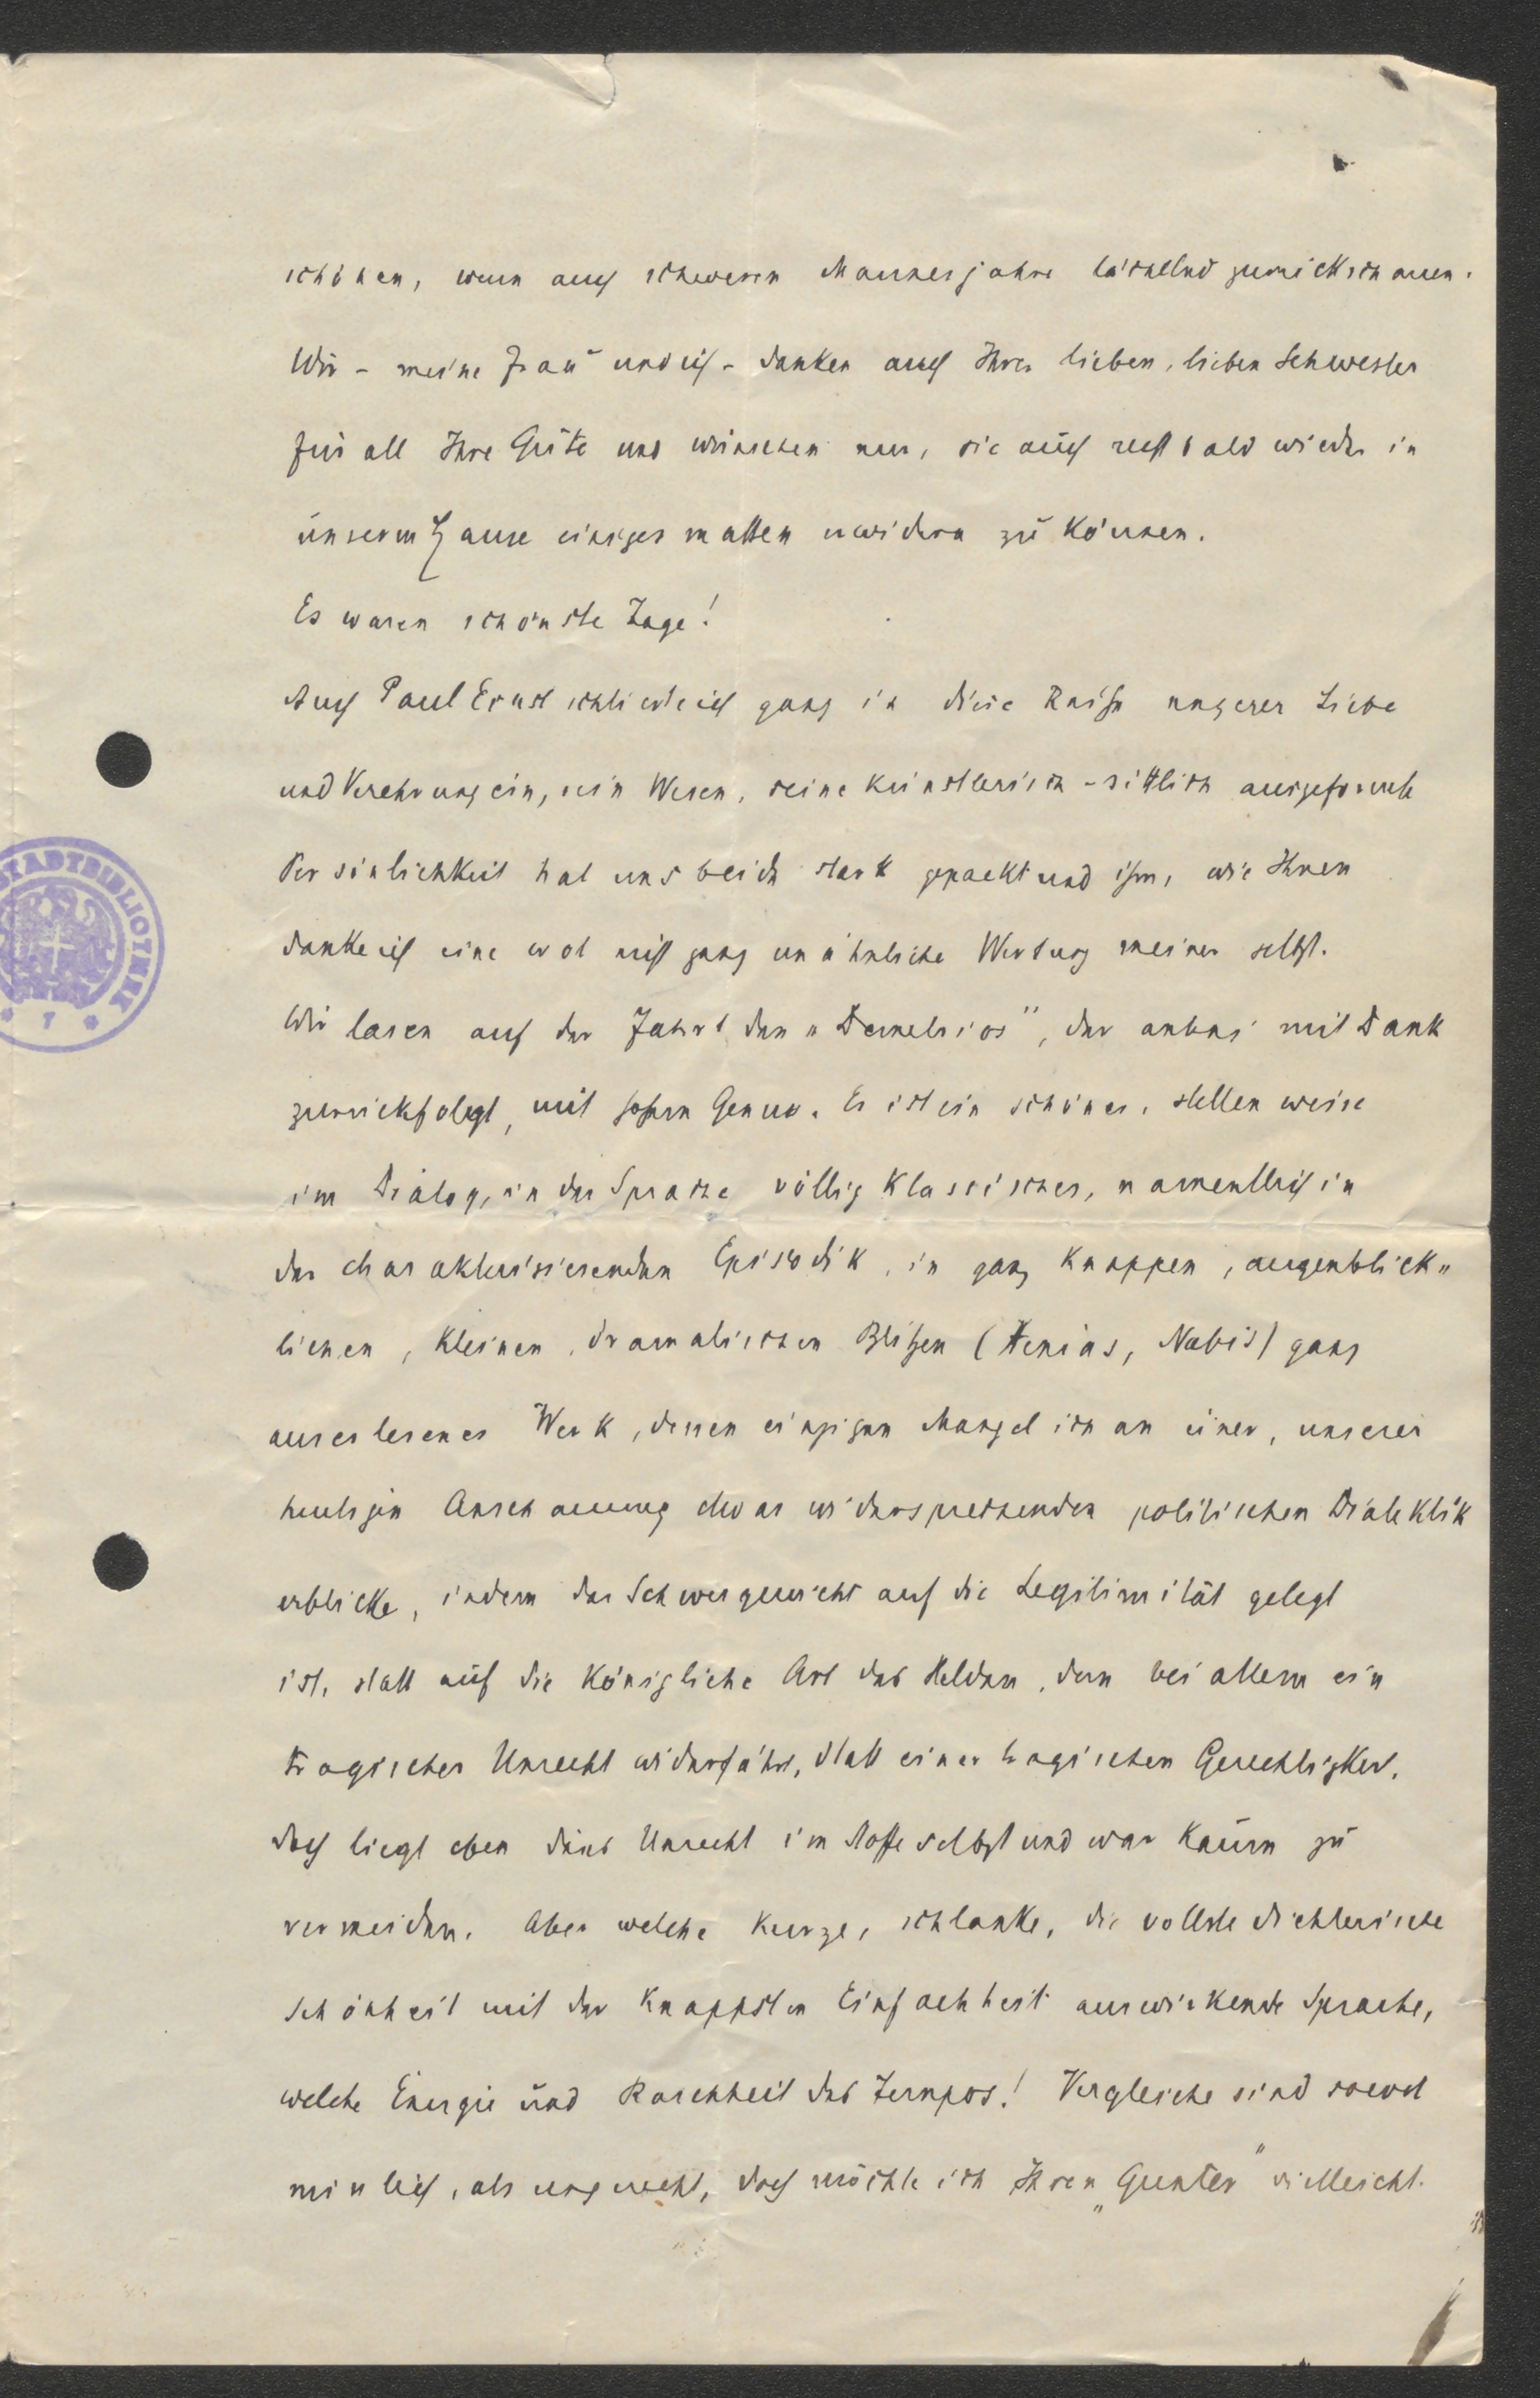 schönen, wenn auch schweren Mannesjahre lächelnd zurückschauen.
Wir - meine Frau und ich - danken auch Ihrer lieben, lieben Schwester
für all Ihre Güte und wünschen nur, sie auch recht bald wieder in
unserm Hause einigermaßen erwidern zu können.
Es waren schönste Tage!
Auch Paul Ernst schließe ich ganz in diese Reihe unserer Liebe
und Verehrung ein, sein Wesen, seine künstlerisch-sittlich ausgeformte
Persönlichkeit hat uns beide stark gepackt und ihm, wie Ihnen
danke ich eine wol nicht ganz unähnliche Wertung meiner selbst.
Wir lasen auf der Fahrt den „Demetrios", der anbei mit Dank
zurückfolgt, mit hohem Genuss. Es ist ein schönes, stellenweise
im Dialog, in der Sprache völlig klassisches, namentlich in
der charakterisierenden Episodik, in ganz knappen, augenblick„
lichen, kleinen, dramatischen Blitzen (Xenias, Nabis) ganz
auserlesenes Werk, dessen einzigen Mangel ich an einer, unserer
heutigen Anschauung etwas widersprechenden politischen Dialektik
erblicke, indem das Schwergewicht auf die Legitimität gelegt
ist, statt auf die königliche Art des Helden, dem bei allem ein
tragisches Unrecht widerfährt, statt einer tragischen Gerechtigkeit.
doch liegt eben dies Unrecht im Stoffe selbst und war kaum zu
vermeiden. Aber welche kurze, schlanke, die vollste dichterische
Schönheit mit der knappsten Einfachheit auswirkende Sprache,
welche Energie und Raschheit des Tempos! Vergleiche sind sowol
misslich, als ungerecht, doch möchte ich Ihren „Gunter" vielleicht
STADTBIBLIOTHEK
* 7 *